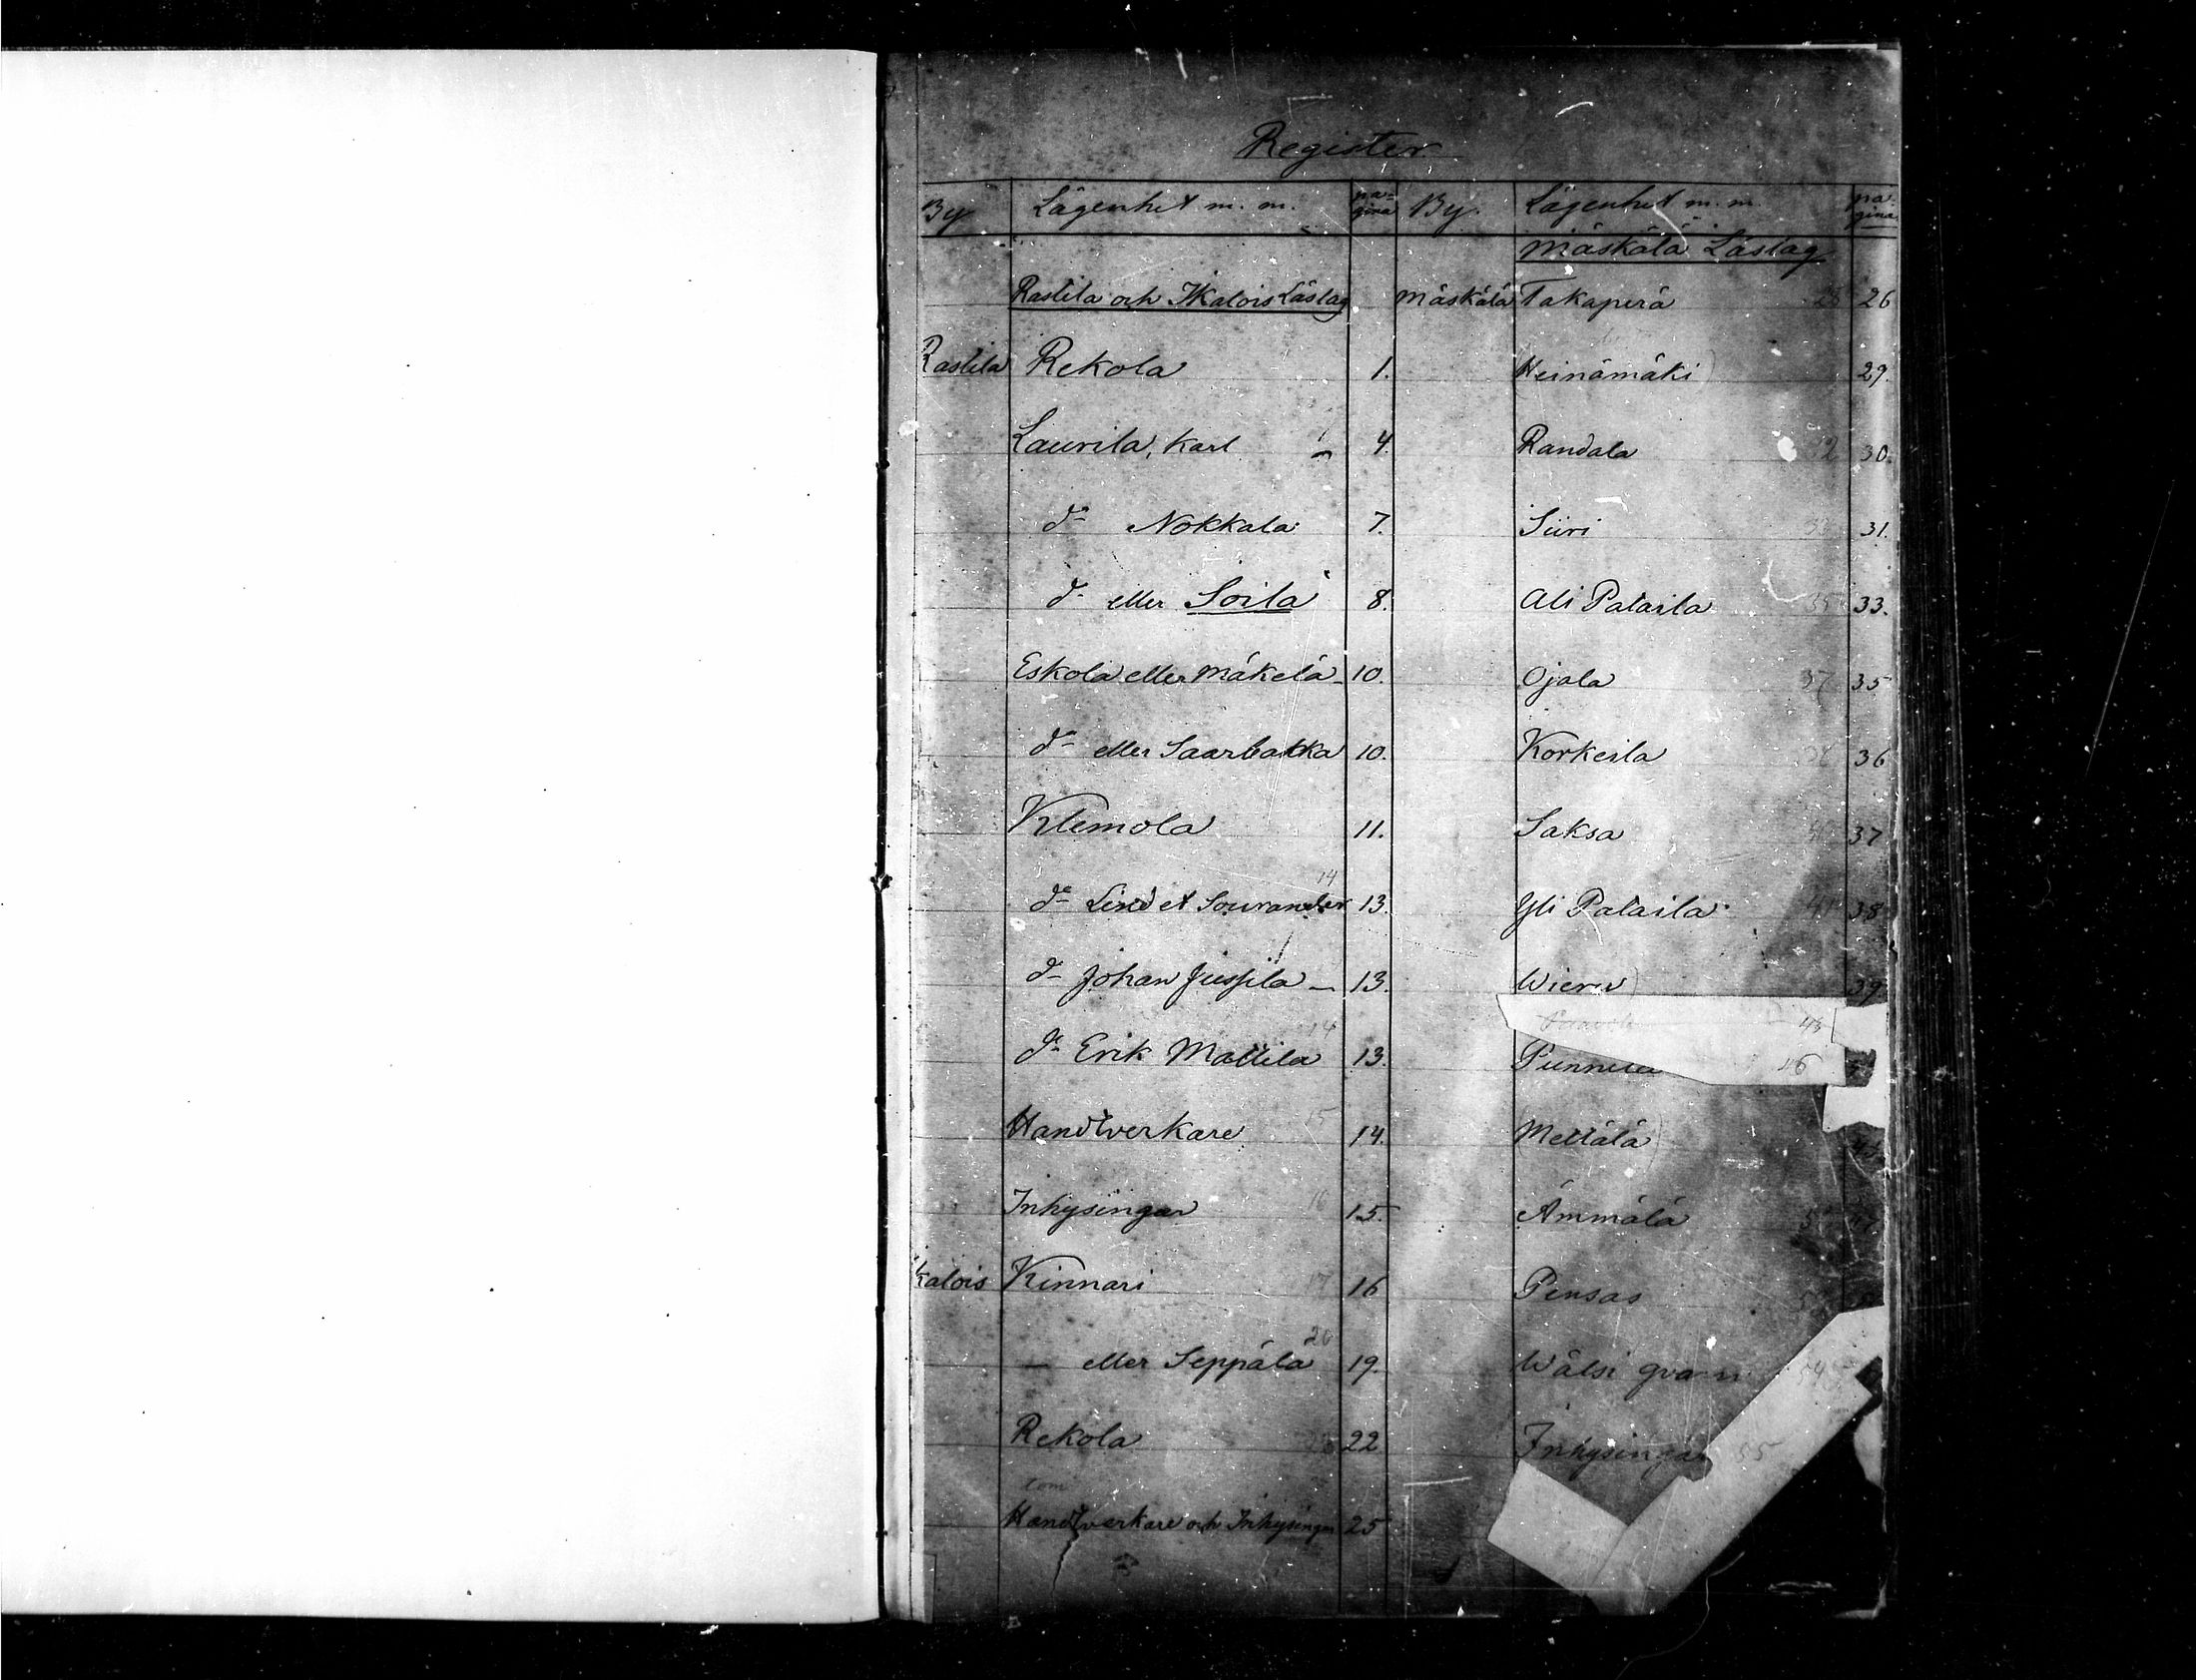 Register
By Lägenhet m. m. pagina
Rastila och Ikalois Läslag
Rastila Rekola 1.
Laurila, Karl 4.
do Nokkala 7.
do eller Soila 8.
Eskola eller Mäkelä 10.
do eller Saarbakka 10.
Klemola 11.
14
do Lind et Sourander 13.
do Johan Jussila 13.
do Erik Mattila 14 13.
Handtverkare 15 14.
Inhysingar 16 15.
kalois Kinnari 17 16
— eller Seppälä 20 19.
Rekola 22
Handtverkare och Inhysingar 25
By. Lägenhet m. m. pagina
Mäskälä Läslag
Mäskälä Takaperä 28 26
Heinämäki) 29.
Randala 30.
Siiri 31.
Ali Palaila 35 33.
Ojala 37 35
Korkeila 36
Saksa 37
Yli Palaila 41 38
Wieru) 39
43
Punnela 46
(Mettälä)
Ämmälä
Pensas
Wälsi qvarn 54
Inhysingar 55